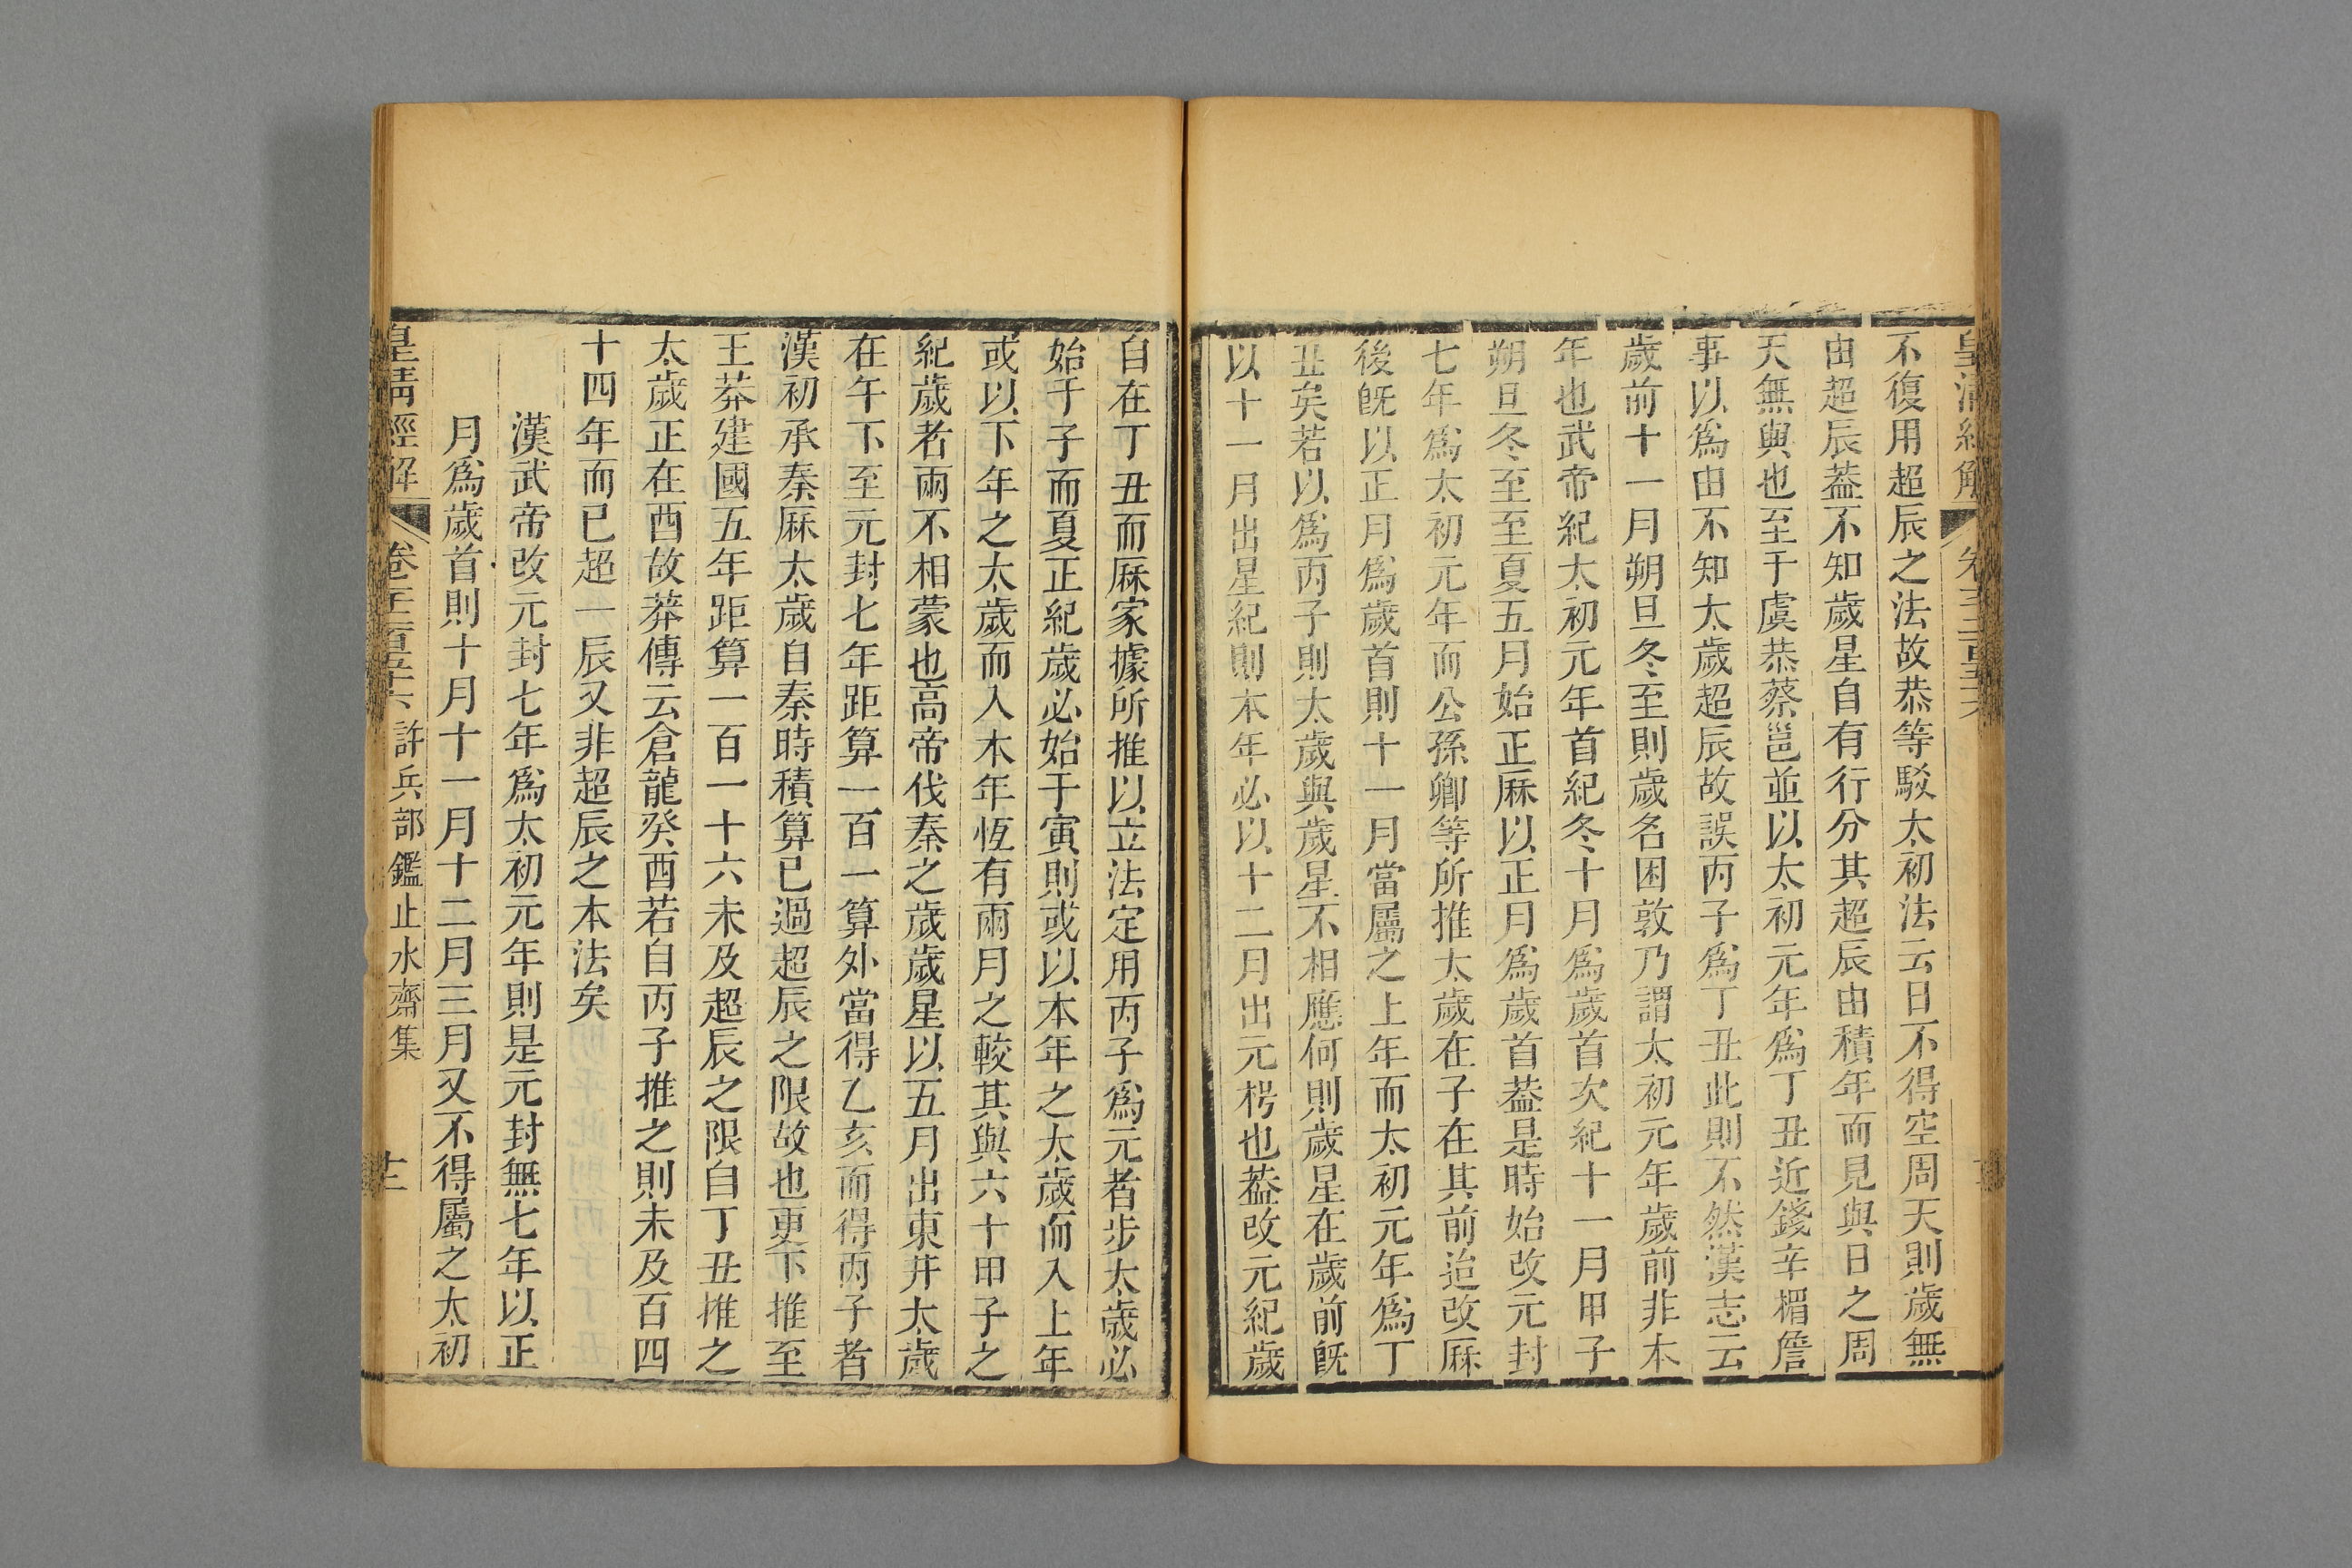 皇清經解
不復用超辰之法故恭等駁太初法云日不得空周天則歲無
由超辰葢不知歲星自有行分其超辰由積年而見與日之周
天無與也至于虞恭蔡邕並以太初元年爲丁丑近錢辛楣詹
事以爲由不知太歲超辰故誤丙子爲丁丑此則不然漢志云
歲前十一月朔旦冬至則歲名困敦乃謂太初元年歲前非本
年也武帝紀太初元年首紀冬十月爲歲首次紀十一月甲子
朔旦冬至至夏五月始正厤以正月爲歲首葢是時始改元封
七年爲太初元年而公孫卿等所推太歲在子在其前迨改厤
後旣以正月爲歲首則十一月當屬之上年而太初元年爲丁
丑矣若以爲丙子則太歲與歲星不相應何則歲星在歲前旣
以十一月出星紀則本年必以十二月出元枵也葢改元紀歲
自在丁丑而厤家據所推以立法定用丙子爲元者步太歲必
始于子而夏正紀歲必始于寅則或以本年之太歲而入上年
或以下年之太歲而入本年恆有兩月之較其與六十甲子之
紀歲者兩不相蒙也高帝伐秦之歲歲星以五月出東井太歲
在午下至元封七年距算一百一算外當得乙亥而得丙子者
漢初承秦厤太歲自秦時積算已過超辰之限故也更下推至
王莽建國五年距算一百一十六未及超辰之限自丁丑推之
太歲正在酉故莽傳云倉龍癸酉若自丙子推之則未及百四
十四年而已超一辰又非超辰之本法矣
漢武帝改元封七年爲太初元年則是元封無七年以正
月爲歲首則十月十一月十二月三月又不得屬之太初
皇清經解 卷 許兵部鑑止水齋集